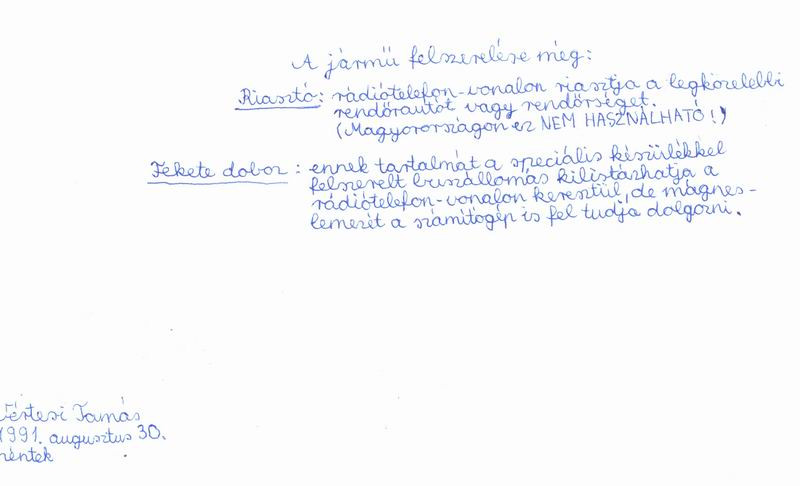 A jármű felszerelése még:
Riasztó: rádiótelefon-vonalon riasztja a legközelebbi
rendőrautót vagy rendőrséget.
(Magyarországon ez NEM HASZNÁLHATÓ!)
Fekete doboz: ennek tartalmát a speciális készülékkel
felszerelt buszállomás kilistázhatja a
rádiótelefon-vonalon keresztül, de mágnes-
lemezét a számítógép is fel tudja dolgozni.
Vértesi Tamás
1991. augusztus 30.
péntek